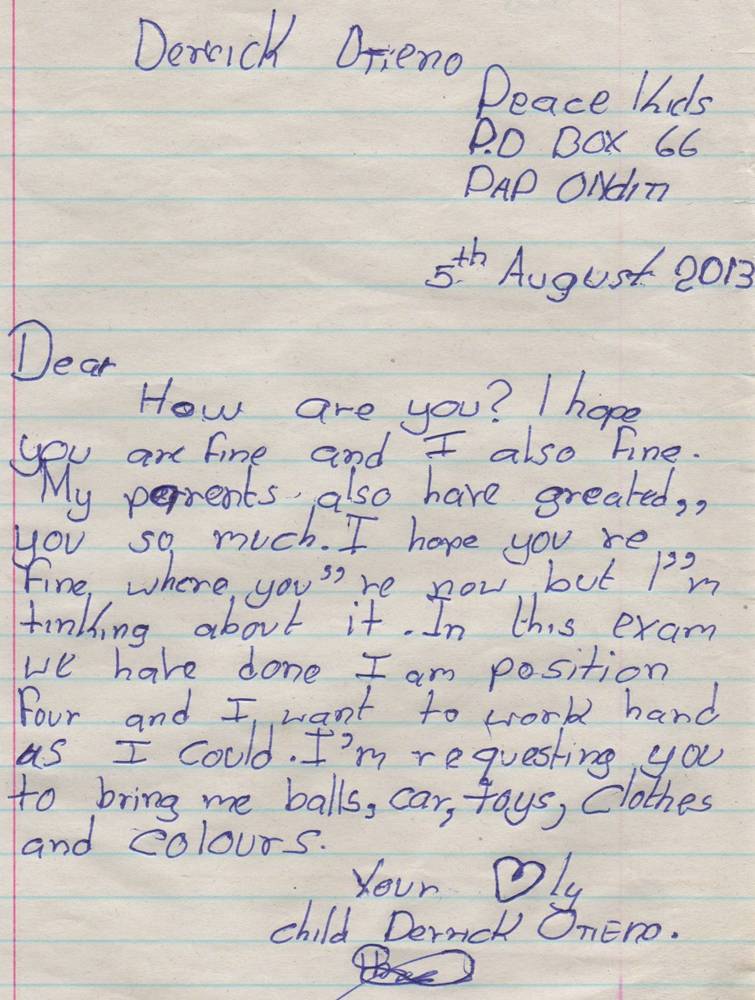 Derrick Otieno
Peace Kids
P.O BOX 66
PAP ONditi
5th August 2013
Dear
How are you? I hope
you are fine and I also fine.
My parents also have greated,,
you so much. I hope you re
fine where you”re now but I”m
tinking about it. In this exam
we have done I am position
four and I want to work hard
as I could. I’m requesting you
to bring me balls, car, toys, clothes
and colours.
Your ♡ly
child Derrick OTIENO.